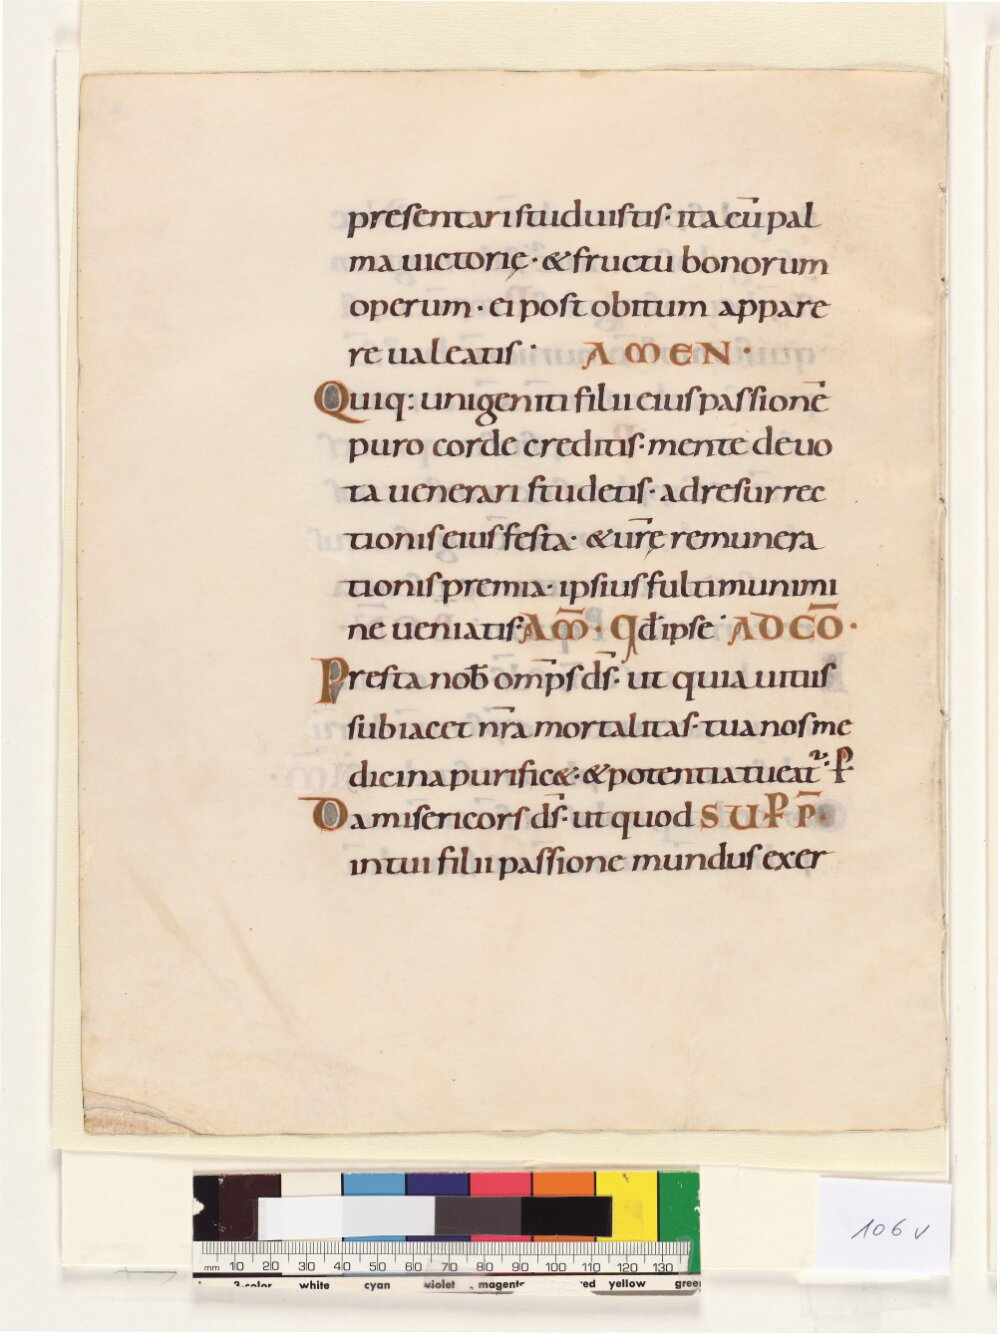 presentari studuistis· ita cū pal
ma uictorię· & fructu bonorum
operum· ei post obitum appare
re ualeatis· AMEN·
Quiq: unigeniti filii eius passionē
puro corde creditis· mente deuo
ta uenerari studetis· ad resurrec
tionis eius festa· & ur̄ę remunera
tionis premia· ipsius fulti munimi
ne ueniatis· AM̄· Qd̄ ipse· AD CŌ·
Presta nob̄ omp̄s d̄s· ut quia uitiis
subiacet nr̄a mortalitas· tua nos me
dicina purificę&· & potentia tueat᷑· P̄
Da misericors d̄s· ut quod SUP P̄·
in tui filii passione mundus exer
106 v
mm 10 20 30 40 50 60 70 80 90 100 110 120 130
3-color white cyan violet magenta red yellow green